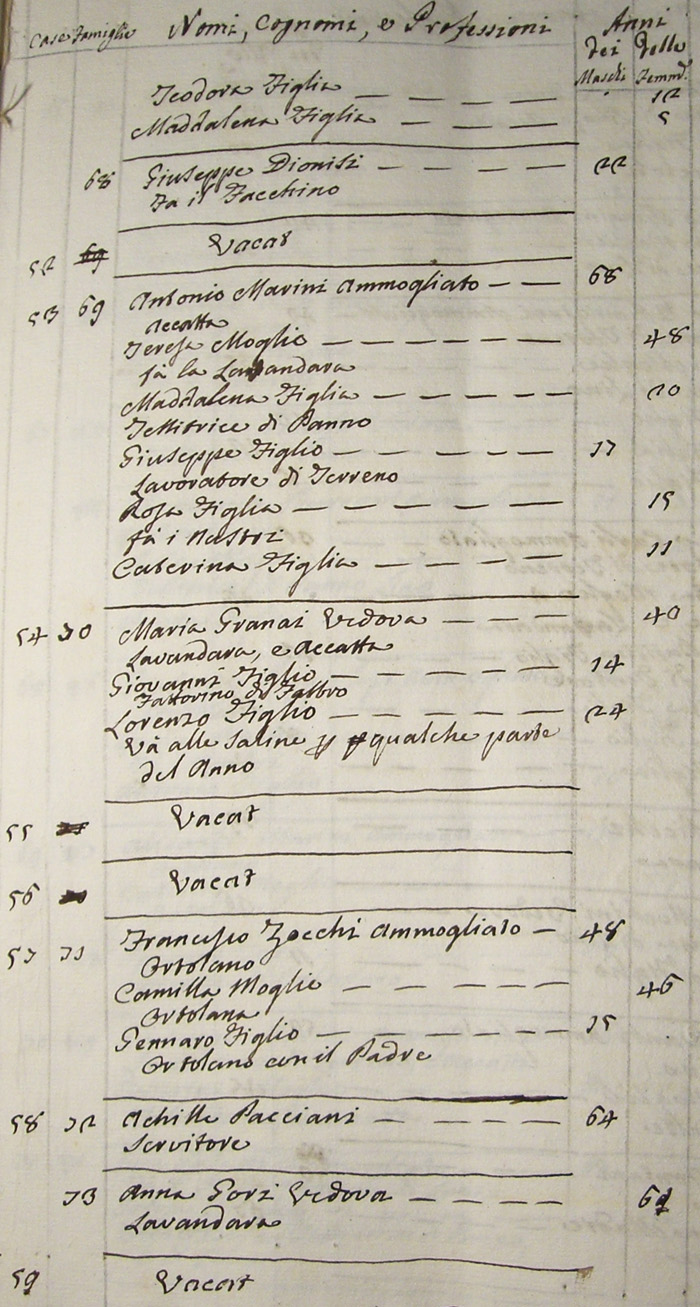 Case Famiglie Nomi, Cognomi, e Professioni Anni
dei delle
Maschi Femm.
Teodora Figlia — — — — 12
Maddalena Figlia — — — 5
68 Giuseppe Dionisi — — — — 22
Fa il Facchino
52 Vacat
53 69 Antonio Marini Ammogliato — — 68
Accatta
Teresa Moglie — — — — — — 48
fà la Lavandara
Maddalena Figlia — — — — — 20
Tessitrice di Panno
Giuseppe Figlio — — — — — 17
Lavoratore di Terreno
Rosa Figlia — — — — — — 15
fà i Nastri
Caterina Figlia — — — — — 11
54 70 Maria Granai Vedova — — — — 40
Lavandara, e Accatta
Giovanni Figlio — — — — — 14
Fattorino di Fabbro
Lorenzo Figlio — — — — — 24
Và alle Saline qualche parte
del Anno
55 Vacat
56 Vacat
57 71 Francesco Zocchi Ammogliato — 48
Ortolano
Camilla Moglie — — — — — 46
Ortolana
Gennaro Figlio — — — — — — 15
Ortolano con il Padre
58 72 Achille Pacciani — — — — 64
Servitore
73 Anna Gorzi Vedova — — — —
Lavandara
59 Vacat